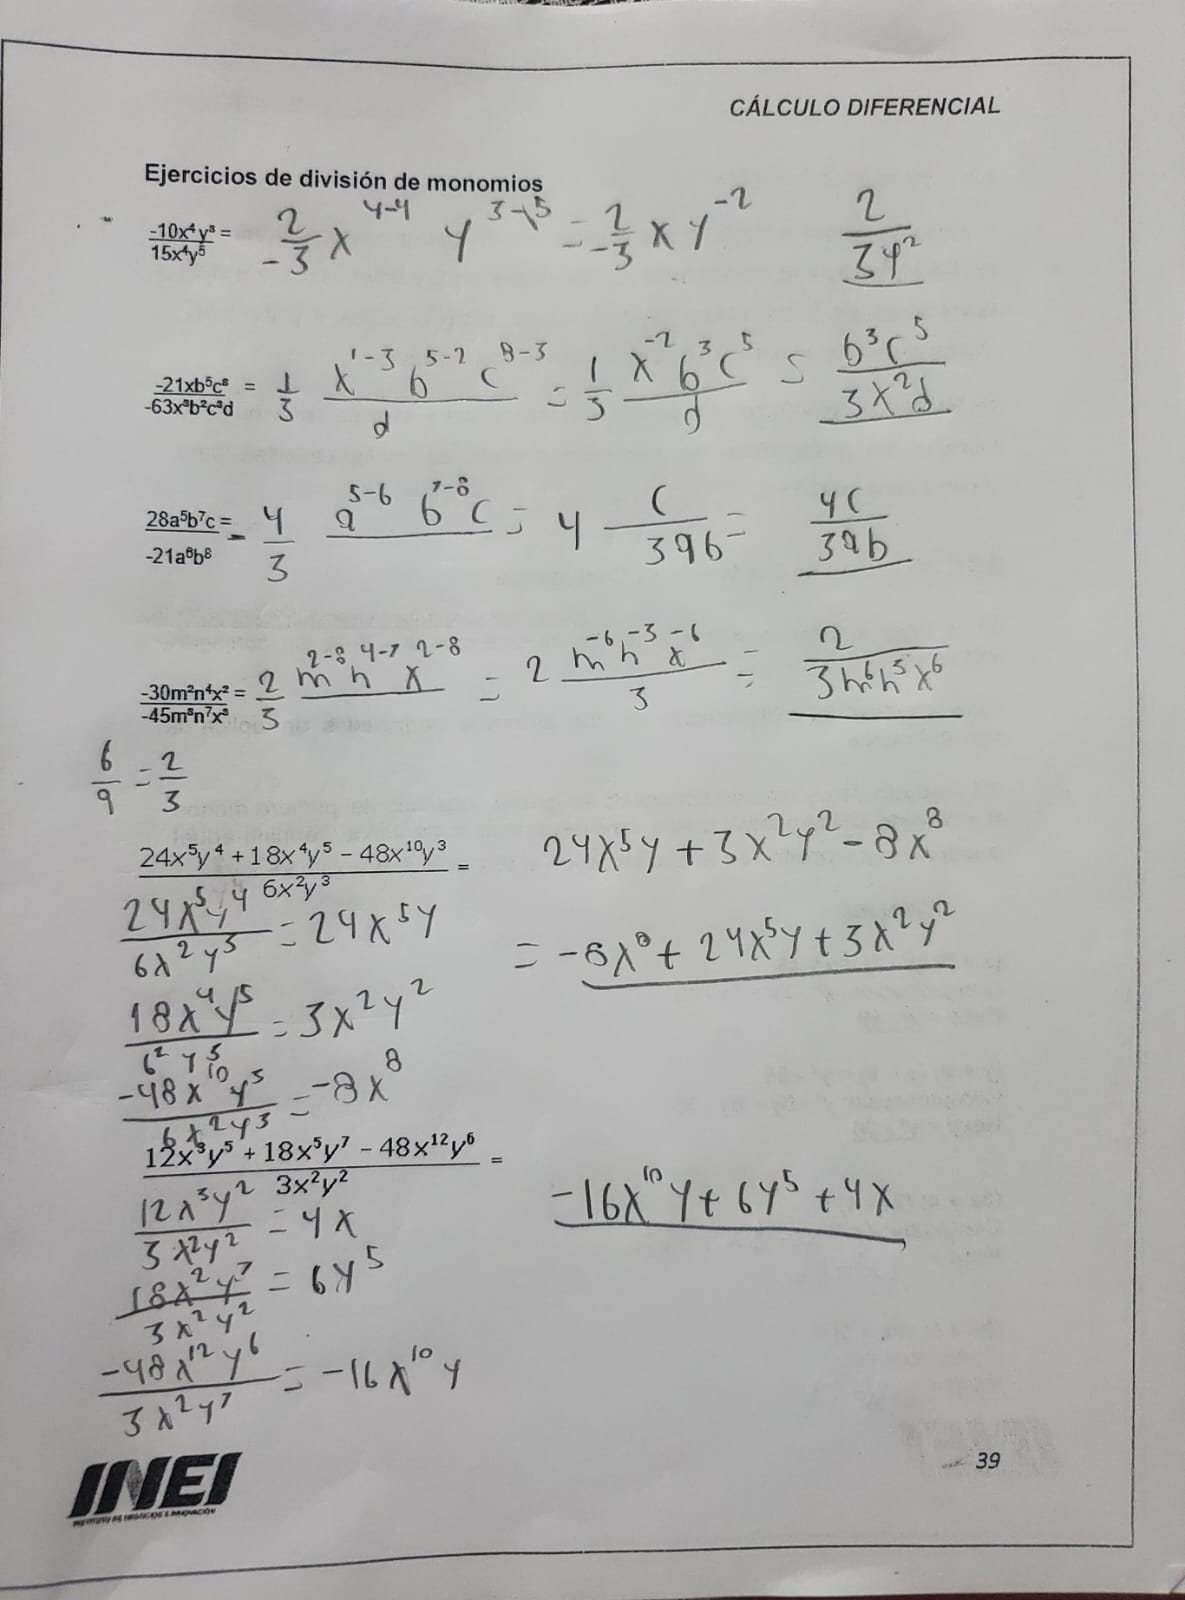 CÁLCULO DIFERENCIAL
Ejercicios de división de monomios
-10x⁴y³ / 15x⁴y⁵ = 2/-3 x⁴⁻⁴ y³⁻⁵ = 2/-3 x y⁻² 2/3y²
-21xb⁵c⁸ / -63x³b²c³d = 1/3 x¹⁻³ b⁵⁻² c⁸⁻³ / d = 1/3 x⁻² b³ c⁵ / d = b³c⁵ / 3x²d
28a⁵b⁷c / -21a⁶b⁸ = - 4/3 a⁵⁻⁶ b⁷⁻⁸ c = 4 c/3ab = 4c/3ab
-30m²n⁴x² / -45m⁸n⁷x⁸ = 2/3 m²⁻⁸ n⁴⁻⁷ x²⁻⁸ = 2 m⁻⁶ n⁻³ x⁻⁶ / 3 = 2 / 3m⁶n³x⁶
6/9 = 2/3
24x⁵y⁴ + 18x⁴y⁵ – 48x¹⁰y³ / 6x²y³ = 24x⁵y + 3x²y² - 8x⁸
24x⁵y⁴ / 6x²y³ = 24x⁵y
= -8x⁸ + 24x⁵y + 3x²y²
18x⁴y⁵ / 6² y³ = 3x²y²
-48x¹⁰y³ / 6x²y³ = -8x⁸
12x³y⁵ + 18x⁵y⁷ – 48x¹²y⁶ / 3x²y² =
-16x¹⁰y + 6y⁵ + 4x
12x³y² / 3x²y² = 4x
18x²y⁷ / 3x²y² = 6y⁵
-48x¹²y⁶ / 3x²y⁷ = -16x¹⁰y
INEI
39